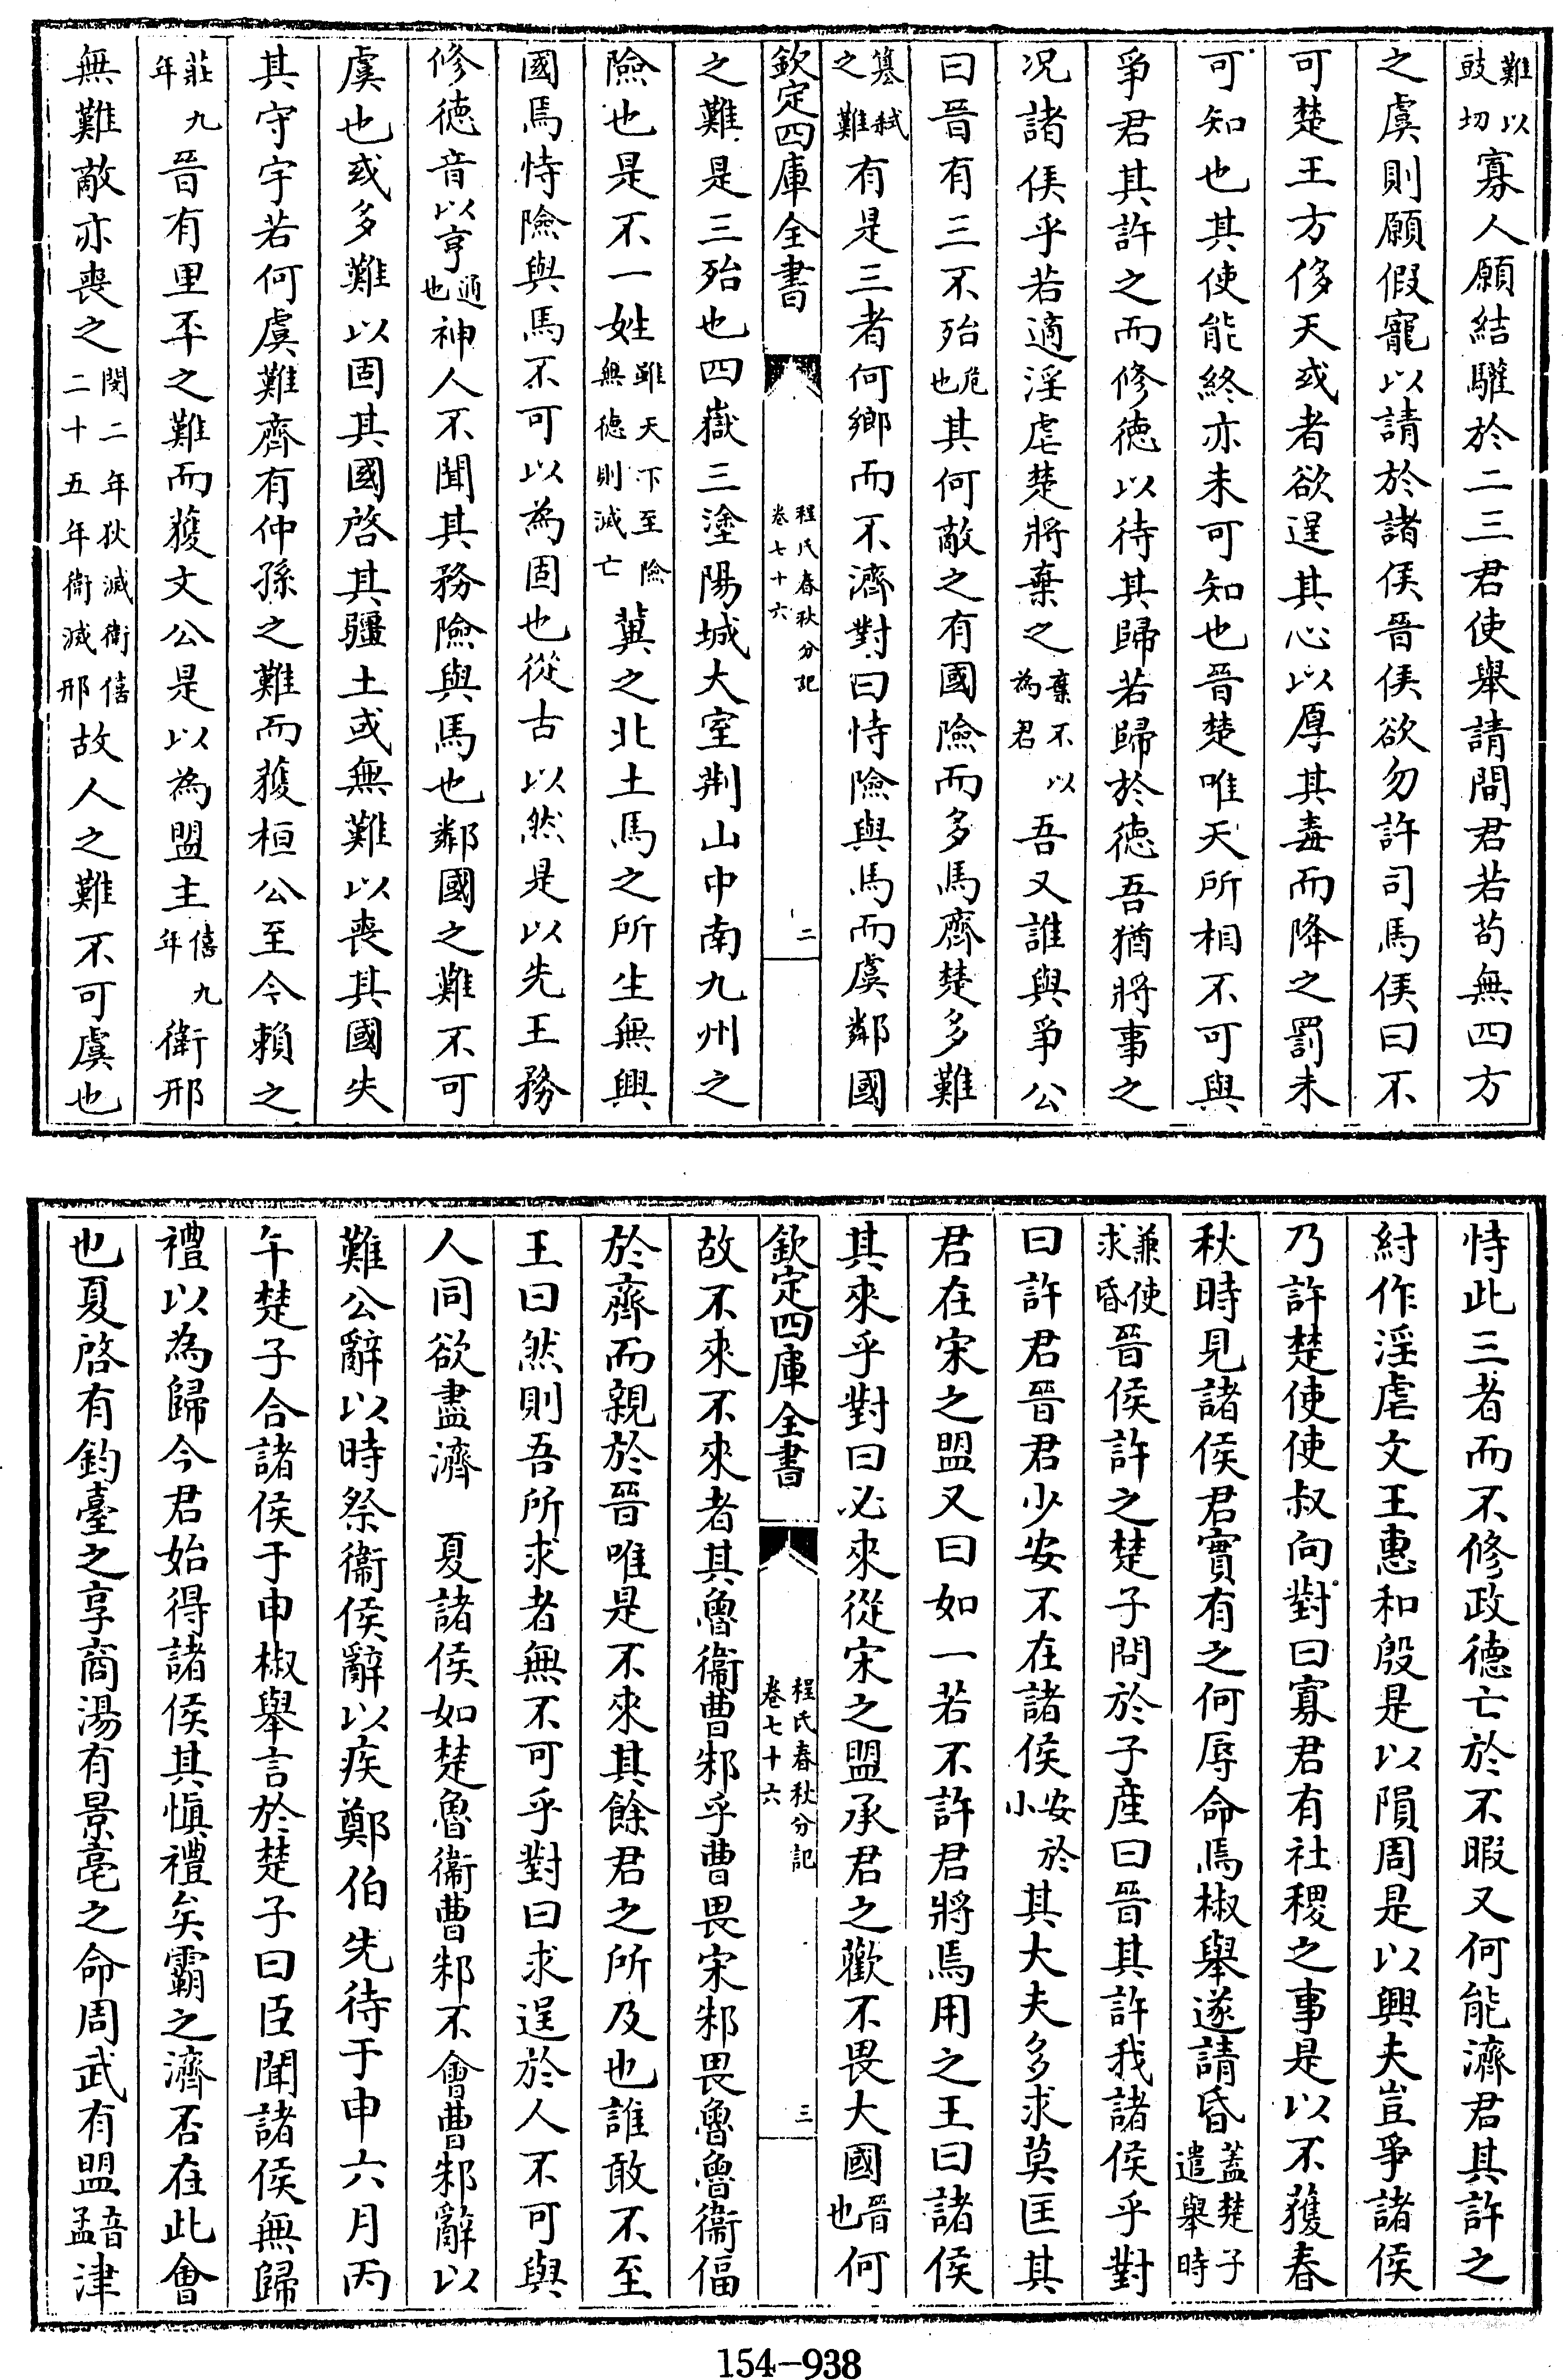 難以豉切寡人願結驩於二三君使舉請間君若苟無四方
之虞則願假寵以請於諸侯晉侯欲勿許司馬侯曰不
可楚王方侈天或者欲逞其心以厚其毒而降之罰未
可知也其使能終亦未可知也晉楚唯天所相不可與
爭君其許之而修徳以待其歸若歸於徳吾猶將事之
况諸侯乎若適淫虐楚將棄之棄不以為君吾又誰與爭公
曰晉有三不殆危也其何敵之有國險而多馬齊楚多難
篡弑之難有是三者何鄉而不濟對曰恃險與馬而虞鄰國
欽定四庫全書
程氏春秋分記
卷七十六
二
之難是三殆也四嶽三塗陽城大室荆山中南九州之
險也是不一姓雖天下至險無徳則滅亡冀之北土馬之所生無興
國焉恃險與馬不可以為固也從古以然是以先王務
修徳音以亨通也神人不聞其務險與馬也鄰國之難不可
虞也或多難以固其國啓其疆土或無難以喪其國失
其守宇若何虞難齊有仲孫之難而獲桓公至今賴之
莊九年晉有里丕之難而獲文公是以為盟主僖九年衛邢
無難敵亦喪之閔二年狄滅衛僖二十五年衛滅邢故人之難不可虞也
恃此三者而不修政德亡於不暇又何能濟君其許之
紂作淫虐文王惠和殷是以隕周是以興夫豈爭諸侯
乃許楚使使叔向對曰寡君有社稷之事是以不獲春
秋時見諸侯君實有之何辱命焉椒舉遂請昏蓋楚子遣舉時
兼使求昏晉侯許之楚子問於子產曰晉其許我諸侯乎對
曰許君晉君少安不在諸侯安於小其大夫多求莫匡其
君在宋之盟又曰如一若不許君將焉用之王曰諸侯
其來乎對曰必來從宋之盟承君之歡不畏大國晉也何
欽定四庫全書
程氏春秋分記
卷七十六
三
故不來不來者其魯衞曹邾乎曹畏宋邾畏魯魯衞偪
於齊而親於晉唯是不來其餘君之所及也誰敢不至
王曰然則吾所求者無不可乎對曰求逞於人不可與
人同欲盡濟　夏諸侯如楚魯衞曹邾不會曹邾辭以
難公辭以時祭衞侯辭以疾鄭伯先待于申六月丙
午楚子合諸侯于申椒舉言於楚子曰臣聞諸侯無歸
禮以為歸今君始得諸侯其慎禮矣霸之濟否在此會
也夏啓有鈞臺之享商湯有景亳之命周武有盟音孟津
154-938